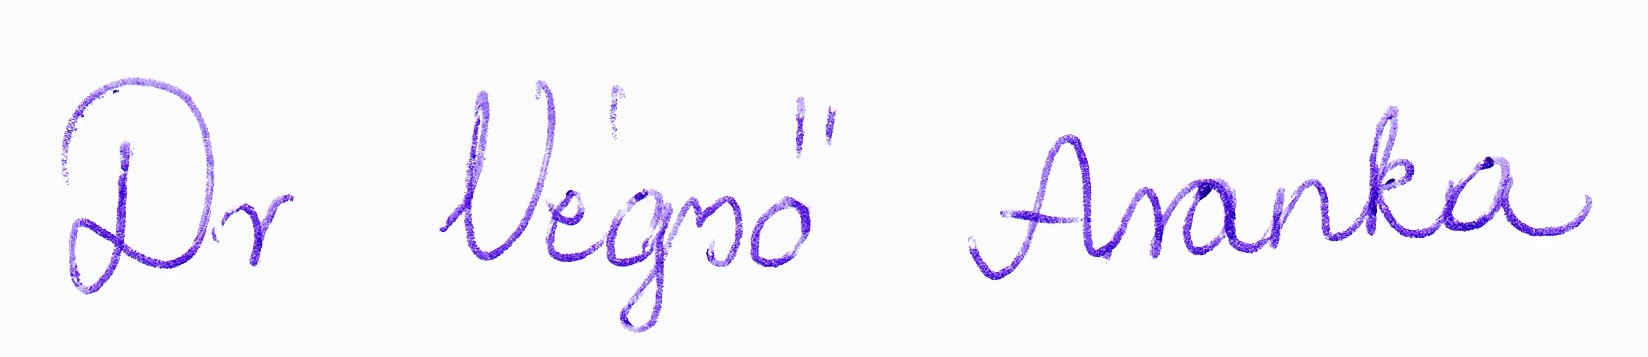 Dr Végső Aranka